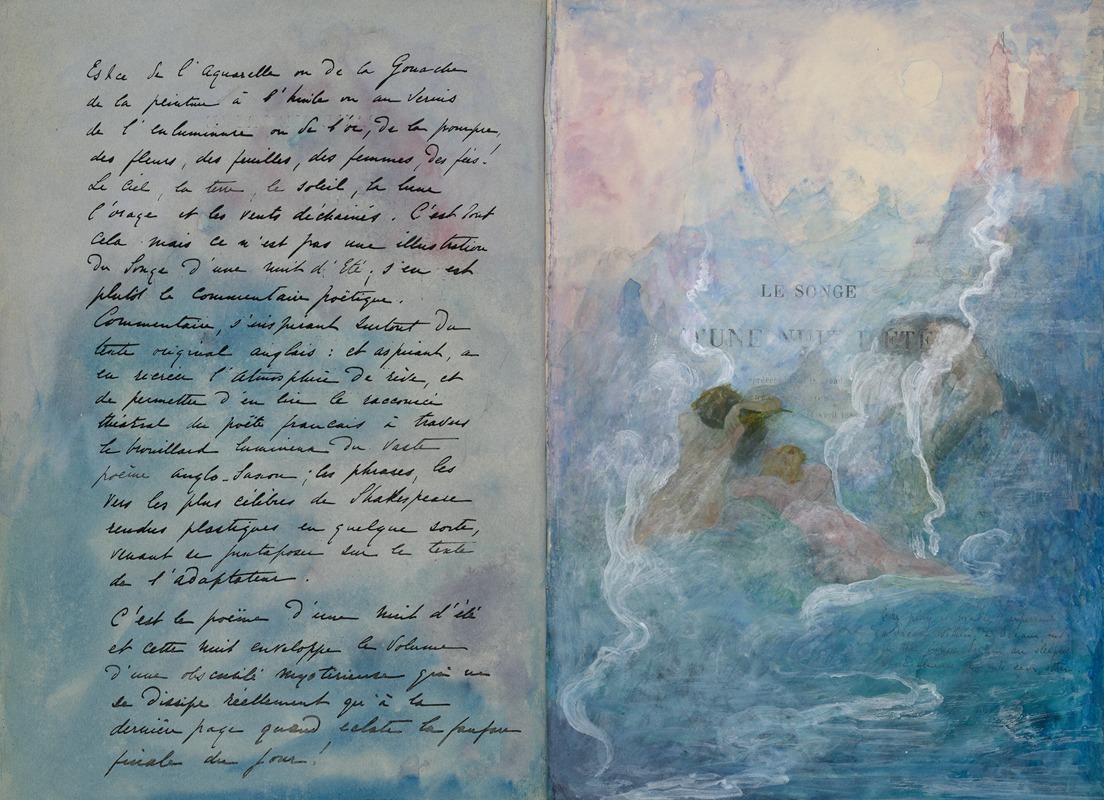 Est ce de l'Aquarelle ou de la Gouache
de la peinture à l'huile ou au Vernis
de l'enluminure ou de l'or, de la pourpre,
des fleurs, des feuilles, des femmes, des fées!
Le Ciel, la terre, le soleil, la lune
l'orage et les vents déchainés. C'est tout
cela mais ce n'est pas une illustration
du Songe d'une nuit d'Eté; s'en est
plutôt le Commentaire poëtique.
Commentaire, s'inspirant surtout du
texte original anglais: et aspirant, a
en recréer l'Atmosphère de rêve, et
de permettre d'en lire le raccourci
théâtral du poëte français à travers
le brouillard lumineux du Vaste
poëme anglo-Saxon; les phrases, les
vers les plus célèbres de Shakespeare
rendus plastiques en quelque sorte,
venant se juxtaposer sur le texte
de l'adaptateur.
C'est le poëme d'une nuit d'été
et cette nuit enveloppe le Volume
d'une obscurité mystérieuse qui ne
se dissipe réellement qu'à la
dernière page quand éclate la fanfare
finale du jour!
LE SONGE
D'UNE NUIT D'ÉTÉ